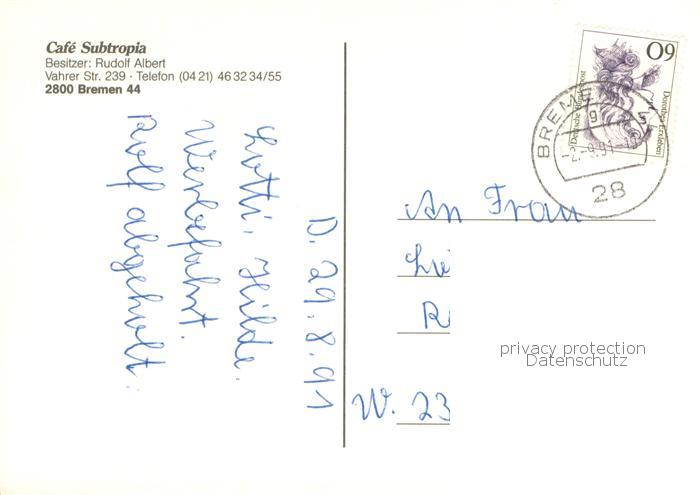 Café Subtropia
Besitzer: Rudolf Albert
Vahrer Str. 239 · Telefon (04 21) 46 32 34/55
2800 Bremen 44
D. 29.8.91
Lotti, Hilde.
Werbefahrt.
Rolf abgeholt.
60
Deutsche Bundespost
Dorothea Erxleben
BREMEN
28
An Frau
W. 23
privacy protection
Datenschutz